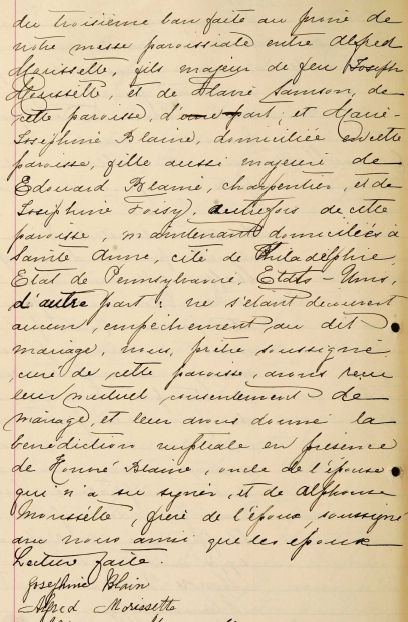 du troisième ban faite au prône de
notre messe paroissiale entre Alfred
Morissette, fils majeur de feu Joseph
Morissette, et de Flavie Samson, de
cette paroisse, d'une part; et Marie-
Josephine Blaine, domiciliée en cette
paroisse, fille aussi majeure de
Edouard Blaine, charpentier, et de
Josephine Foisy, autrefois de cette
paroisse, maintenant domiciliés à
Sainte Anne, cité de Philadelphie,
Etat de Pennsylvanie, Etats-Unis,
d'autre part: ne s'étant découvert
aucun empêchement au dit
mariage, nous, prêtre soussigné
curé de cette paroisse, avons reçu
leur mutuel consentement de
mariage et leur avons donné la
bénédiction nuptiale en présence
de Honoré Blaine, oncle de l'épouse
qui n'a su signer, et de Alphonse
Morissette, frère de l'époux, soussigné
avec nous ainsi que les époux
Lecture faite.
Josephine Blain
Alfred Morissette